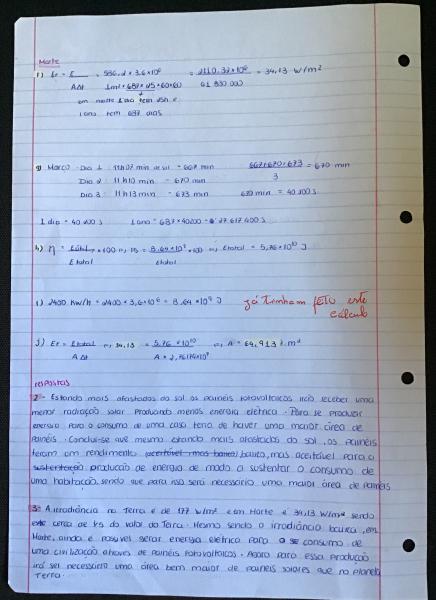 Marte
f) Er = E = 586.2 × 3.6×10⁶ = 2110.32×10⁶ = 34.13 W/m²
AΔt 1m² × 687 × 25 × 60×60 61 830 000
em marte 1 dia tem 25h e
1 ano tem 687 dias
g) Março - Dia 1: 11h07 min de sol = 667 min 667+670+673 = 670 min
3
Dia 2: 11h10 min = 670 min
Dia 3: 11h13 min = 673 min 670 min = 40 200 s
1 dia = 40 200 s 1 ano = 687×40200 = 27 617 400 s
h) η = Eútil × 100 (=) 15 = 8.64×10⁹ × 100 (=) Etotal = 5,76×10¹⁰ J
Etotal Etotal
i) 2400 KW/h = 2400 × 3,6×10⁶ = 8.64×10⁹ J já tinham feito este
cálculo
j) Er = Etotal (=) 34,13 = 5.76×10¹⁰ (=) A = 64,913 m²
AΔt A × 2,7617×10⁷
respostas
2 - Estando mais afastados do sol os painéis fotovoltaicos irão receber uma
menor radiação solar produzindo menos energia elétrica. Para se produzir
energia para o consumo de uma casa teria de haver uma maior área de
painéis. Conclui-se que mesmo estando mais afastados do sol, os painéis
teriam um rendimento (aceitável mas baixo) baixo, mas aceitável para a
sustentação produção de energia de modo a sustentar o consumo de
uma habitação sendo que para isso será necessário uma maior área de painéis
3 - A irradiância na Terra é de 177 W/m² e em Marte é 34.13 W/m² sendo
este cerca de 1/5 do valor da Terra. Mesmo sendo a irradiância baixa, em
Marte, ainda é possível gerar energia elétrica para o consumo de
uma civilização através de painéis fotovoltaicos. Agora para essa produção
irá ser necessário uma área bem maior de painéis solares que no planeta
Terra.